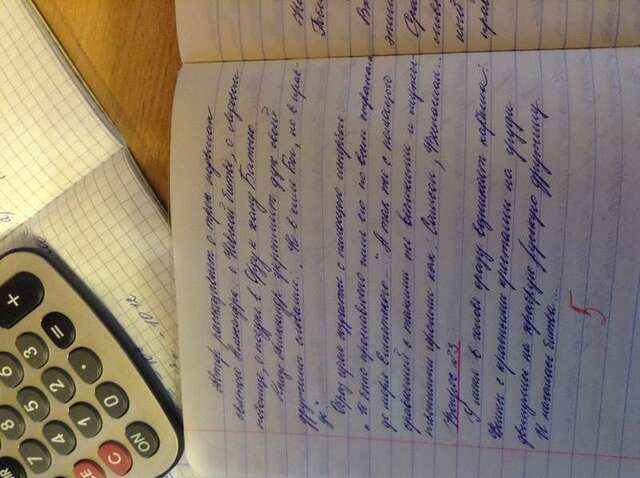 7 8 9
4 5 6 +
1 2 3
CE 0 . =
C
ON
1012
Автор рассказывает о трех подвигах
святого Александра: о Невской битве, о Ледовом
побоище, о поездке в Орду к хану Батыю.
Князь Александр укрепляет дух своей
дружины словами: „Не в силе Бог, но в прав-
де"
Образ героя создается с помощью
„И было прославлено имя его по всем странам
до моря Египетского..." А так же с помощью
сравнений с такими же великими и мужес-
твенными героями как: Самсон, Веспасиан...
Вопрос №3
У меня в голове сразу возникает картина:
Воины с красными крестами на груди
двинулись на храбрую русскую дружину.
И началась битва...
5